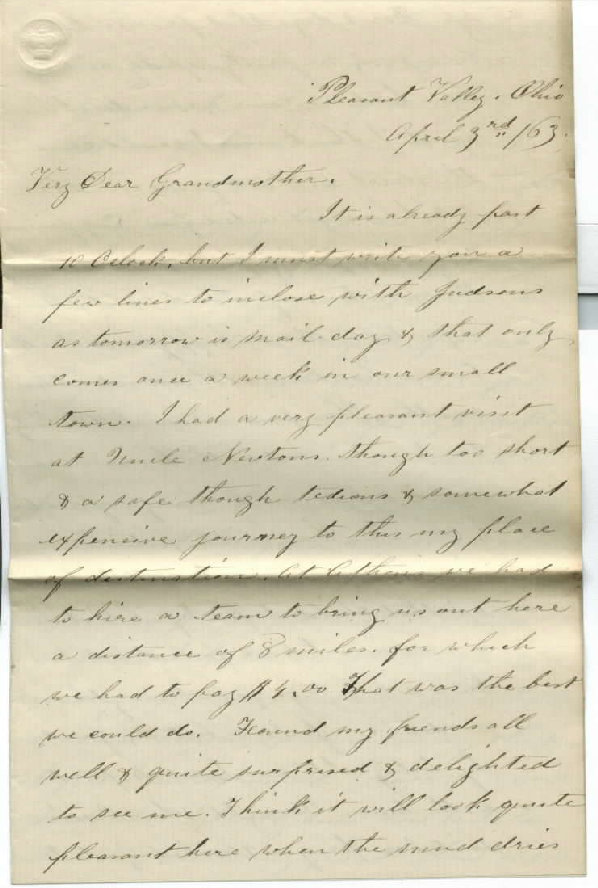 Pleasant Valley. Ohio
April 3rd /63.
Very Dear Grandmother.
It is already past
10 Oclock, but I must write you a
few lines to inclose with Judsons
as tomorrow is mail-day & that only
comes once a week in our small
town. I had a very pleasant visit
at Uncle Newtons though too short
& a safe though tedious & somewhat
expensive journey to this my place
of destination. At Athens we had
to hire a team to bring us out here
a distance of 8 miles. for which
we had to pay $4.00 That was the best
we could do. Found my friends all
well & quite surprised & delighted
to see me. Think it will look quite
pleasant here when the mud dries